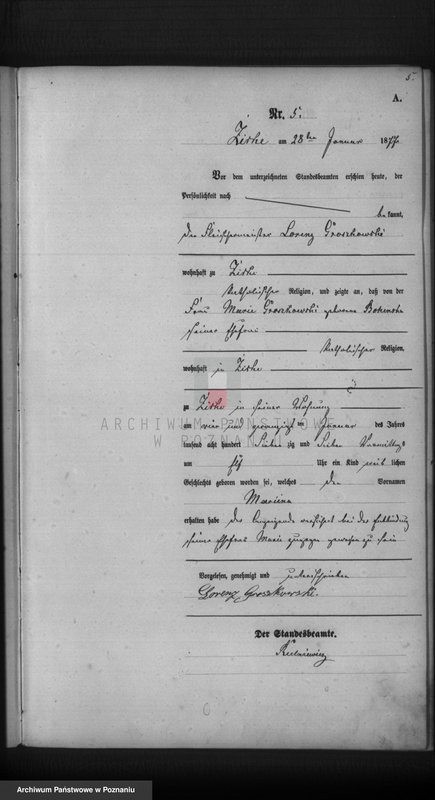 5.
A.
Nr. 5.
Zirke am 28ten Januar 1877.
Vor dem unterzeichneten Standesbeamten erschien heute, der
Persönlichkeit nach
be kannt,
der Fleischermeister Lorenz Groszkowski
wohnhaft zu Zirke
katholischer Religion, und zeigte an, daß von der
Frau Marie Groszkowski geborene
seiner Ehefrau
katholischer Religion,
wohnhaft in Zirke
zu Zirke in seiner Wohnung
am vier und zwanzigst en Januar des Jahres
tausend acht hundert Sieben zig und Sieben Vormittags
um Uhr ein Kind weib lichen
Geschlechts geboren worden sei, welches den Vornamen
Marianna
erhalten habe der Anzeigende versichert bei der Entbindung
seiner Ehefrau Marie zugegen gewesen zu sein
Vorgelesen, genehmigt und unterschrieben
Lorenz Groszkowski.
Der Standesbeamte.
ARCHIWUM PAŃSTWOWE
W POZNANIU
Archiwum Państwowe w Poznaniu